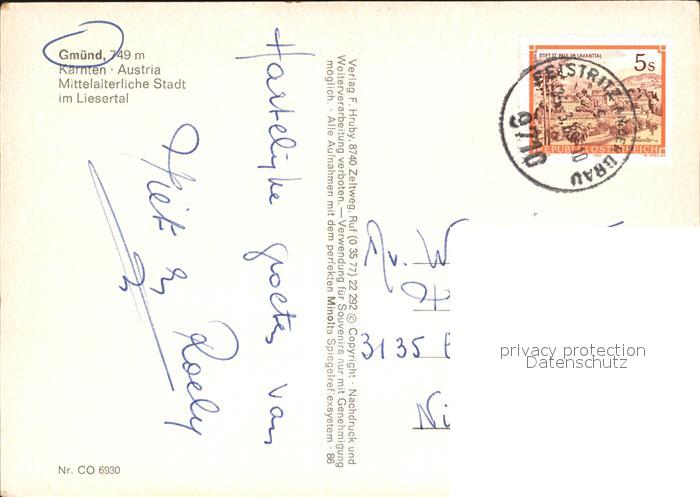 Gmünd, 749 m
Kärnten · Austria
Mittelalterliche Stadt
im Liesertal
Hartelijke groeten van
Piet en Roely
Verlag F. Hruby, 8740 Zeltweg, Ruf (0 35 77) 22 292 © Copyright · Nachdruck und
Weiterverarbeitung verboten. — Verwendung für Souvenirs nur mit Genehmigung
möglich. · Alle Aufnahmen mit dem perfekten Minolta Spiegelreflexsystem · 86
STIFT ST. PAUL IM LAVANTTAL
5s
REPUBLIK ÖSTERREICH
FEISTRITZ A. D. DRAU
9710
3135
privacy protection
Datenschutz
Nr. CO 6930